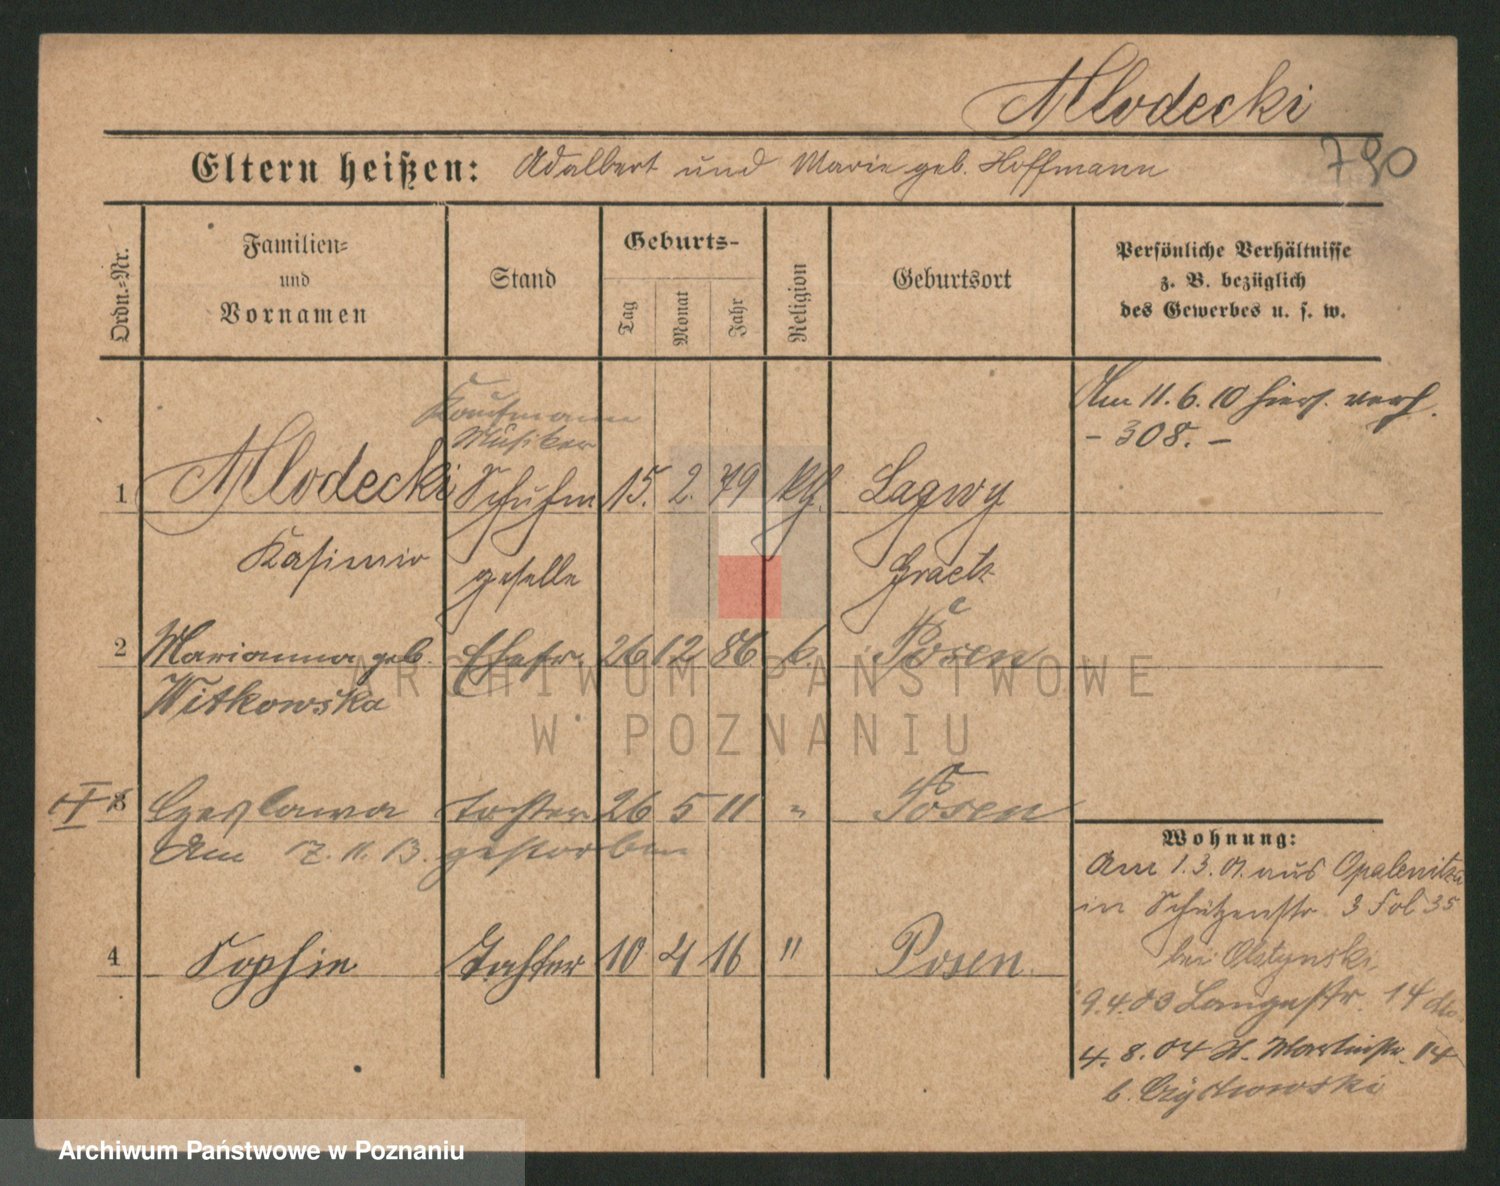 Mlodecki
790
Eltern heißen: Adalbert und Marie geb. Hoffmann
Ordn.=Nr.
Familien=
und
Vornamen
Stand
Geburts-
Tag
Monat
Jahr
Religion
Geburtsort
Persönliche Verhältnisse
z. B. bezüglich
des Gewerbes u. s. w.
Kaufmann
Musiker
Am 11.6.10 hies. verh.
- 308. -
1 Mlodecki Schuhm 15. 2. 79 kth. Lagwy
Kasimir geselle Graetz
2 Marianna geb. Ehefr. 26 12 86 k. Posen
Witkowska
3 Czeslawa Tochter 26 5 11 " Posen
Am 17.11.13. gestorben
4 Sophie Tochter 10 4 16 " Posen
Wohnung:
Am 1.3.01. aus Opalenitza
in Schützenstr. 3 Fol 35
bei Olstynski
9.4.03 Langestr. 14
4.8.04 St. Martinstr. 14
b.
ARCHIWUM PAŃSTWOWE
W POZNANIU
Archiwum Państwowe w Poznaniu